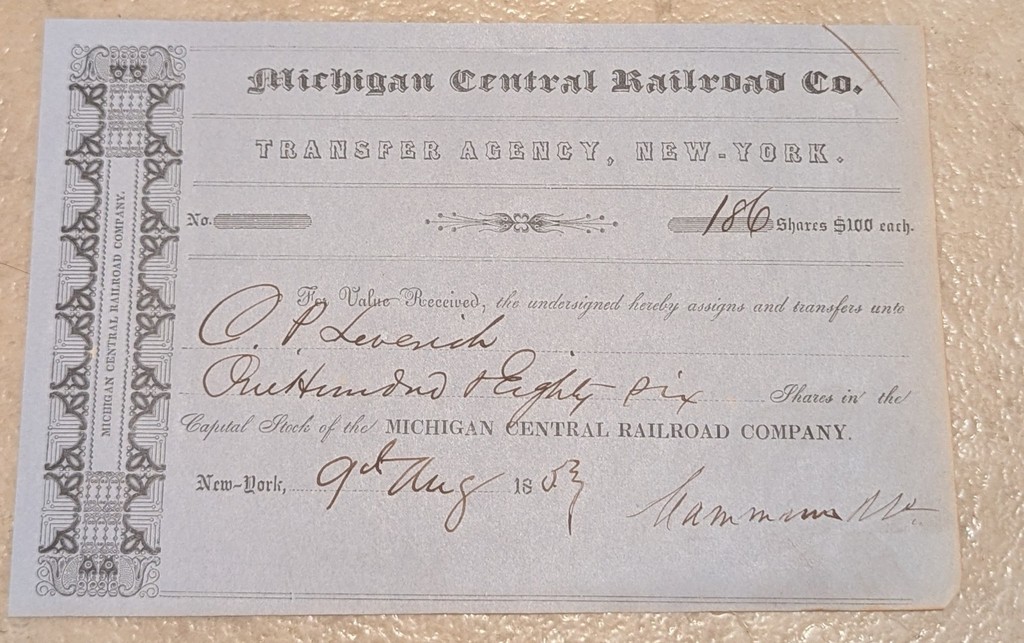 Michigan Central Railroad Co.
TRANSFER AGENCY, NEW-YORK.
No. 186 Shares $100 each.
For Value Received, the undersigned hereby assigns and transfers unto
C. P. Leverich
One Hundred & Eighty Six Shares in the
Capital Stock of the MICHIGAN CENTRAL RAILROAD COMPANY.
New-York, 9th Aug 1853
MICHIGAN CENTRAL RAILROAD COMPANY.